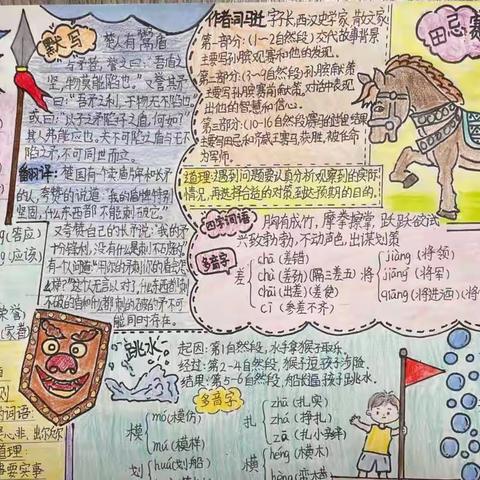 默写
楚人有鬻盾
与矛者,誉之曰:"吾盾之
坚,物莫能陷也。"又誉其矛
曰:"吾矛之利,于物无不陷也
或曰:"以子之矛陷子之盾,何如?"
其人弗能应也。夫不可陷之盾与无不
陷之矛,不可同世而立。
翻译:楚国有一个卖盾牌和长矛
的人,夸赞的说道:"我的盾牌特别
坚固,什么东西都不能刺破它。"
又夸赞自己的长矛说:"我的矛
十分锋利,没有什么是刺不穿的
有一个问道:
能同时存在。
作者:司马迁,字子长,西汉史学家,散文家
第一部分:(1~2自然段)交代故事背景
主要写孙膑观赛和他的发现。
第二部分:(3~9自然段)孙膑献策
主要写孙膑赛前献策,对话中表现
出他的智慧和信心。
第三部分:(10~16自然段)
主要写田忌和齐威王赛马获胜,被任命
为军师。
道理:遇到问题要认真分析观察到的实际
情况,再选择合适的对策,达到预期的目的。
田忌赛
四字词语
胸有成竹,摩拳擦掌,跃跃欲试
兴致勃勃,不动声色,出谋划策
多音字
差
chā(差错)
chà(差劲)
chāi(出差)(差使)
cī(参差不齐)
将
jiāng(将领)
jiàng(将军)
qiāng(将进酒)
跳水
起因:第1自然段,水手拿猴子取乐。
经过:第2-4自然段,猴子逗孩子涉险。
结果:第5-6自然段,船长逼孩子跳水。
多音字
模
mó(模仿)
mú(模样)
划
huá(划船)
扎
zhā(扎实)
zhá(挣扎)
zā(扎小辫)
横
héng(横木)
hèng(蛮横)
(答应)
(应该)
词语:
道理: